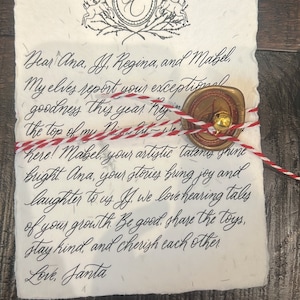 Dear Ana, JJ, Regina, and Mabel,
My elves report your exceptional
goodness this year
the top of my
here! Mabel, your artistic talents shine
bright Ana, your stories bring joy and
laughter to us JJ, we love hearing tales
of your growth Be good, share the toys,
stay kind and cherish each other
Love, Santa